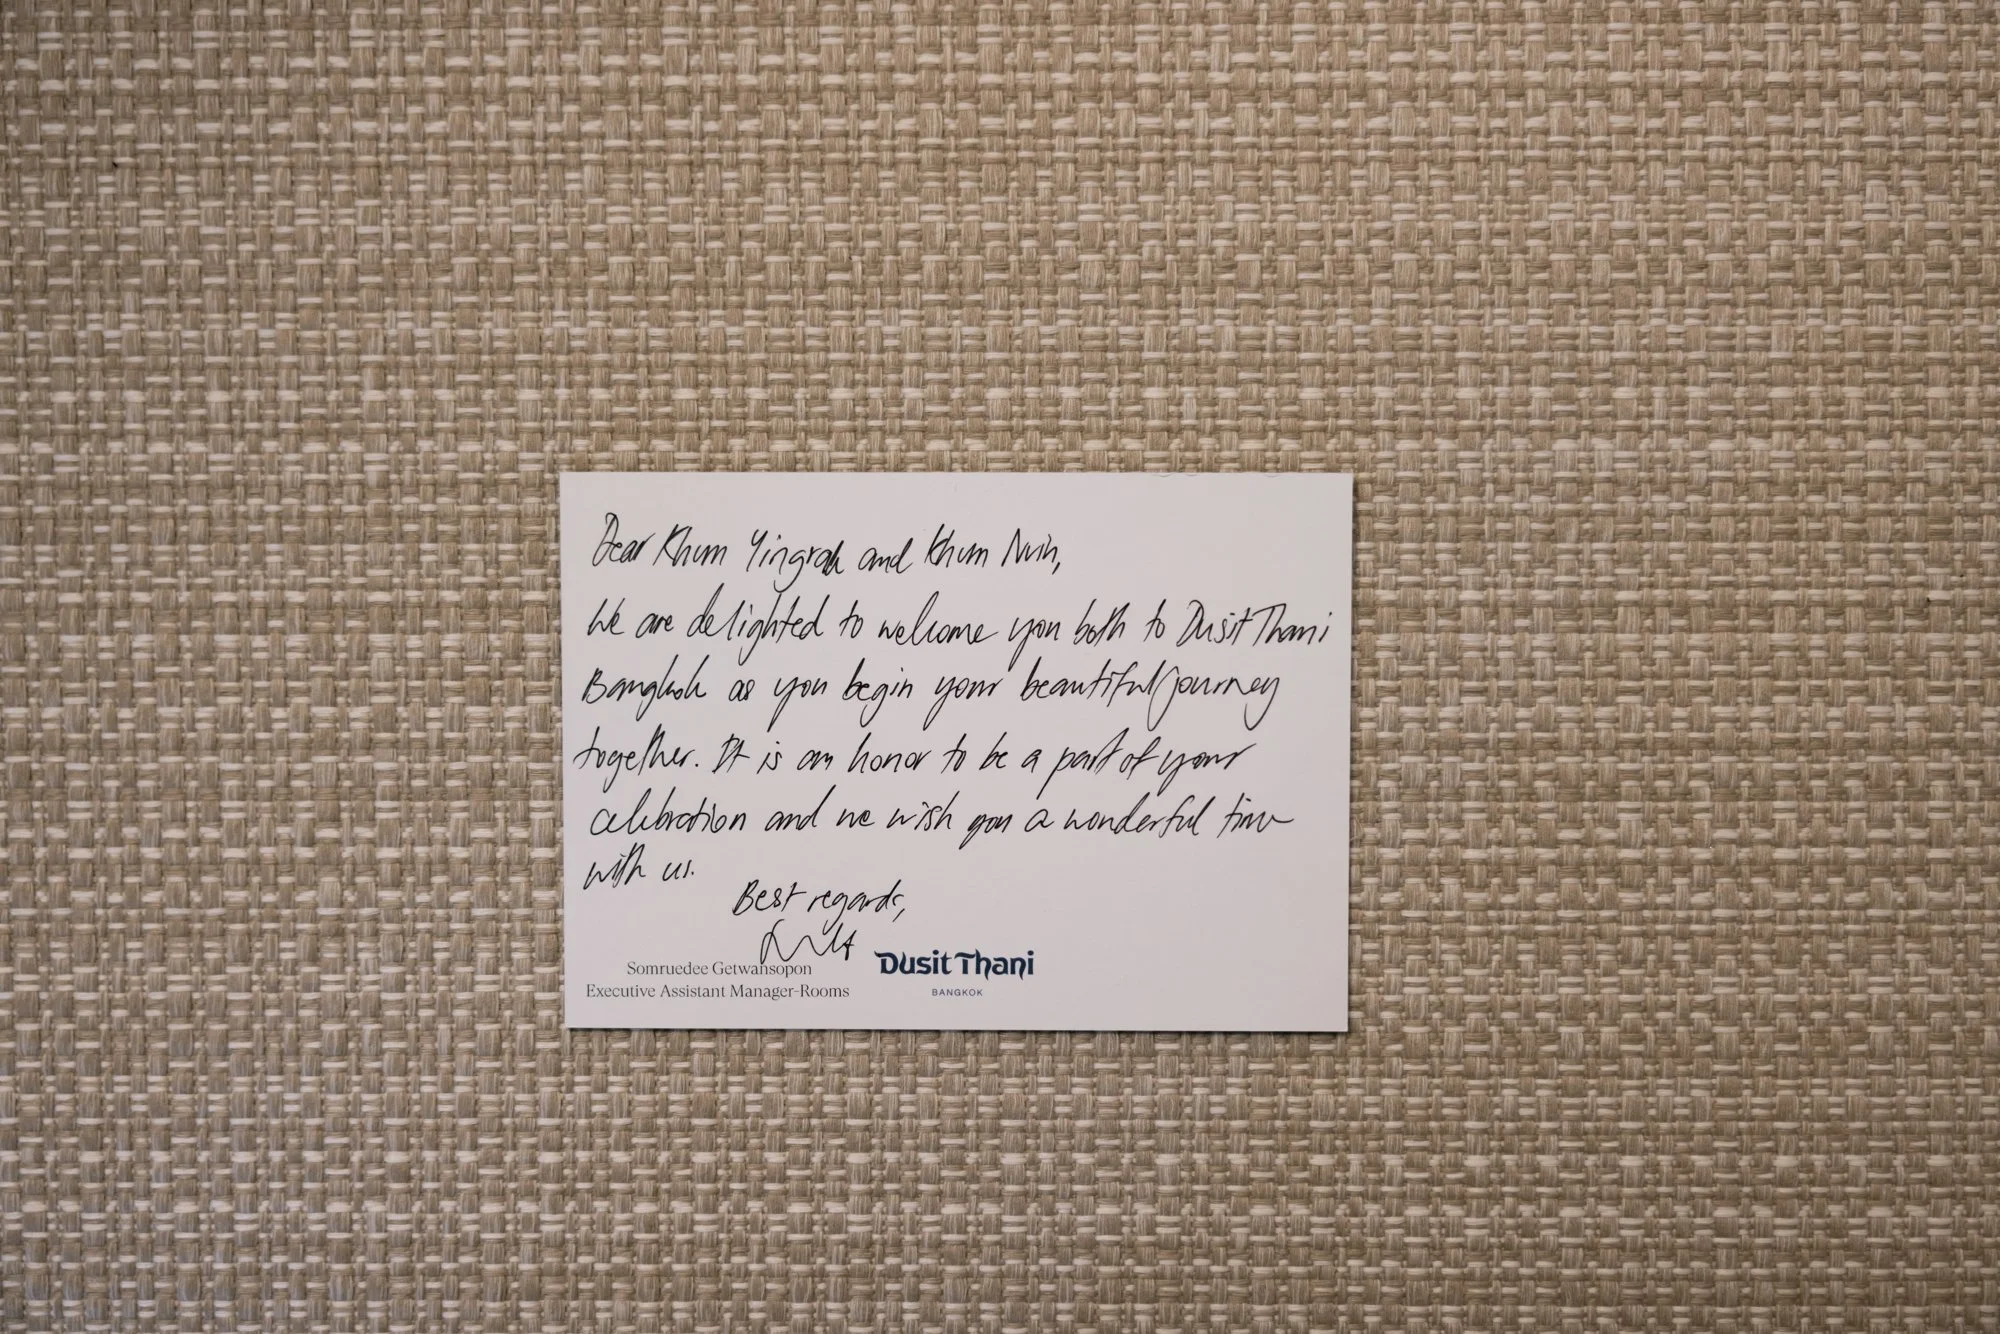 Dear Khun Yingrak and Khun Nuin,
We are delighted to welcome you both to Dusit Thani
Bangkok as you begin your beautiful journey
together. It is an honor to be a part of your
celebration and we wish you a wonderful time
with us.
Best regards,
Somruedee Getwansopon
Executive Assistant Manager-Rooms
Dusit Thani
BANGKOK